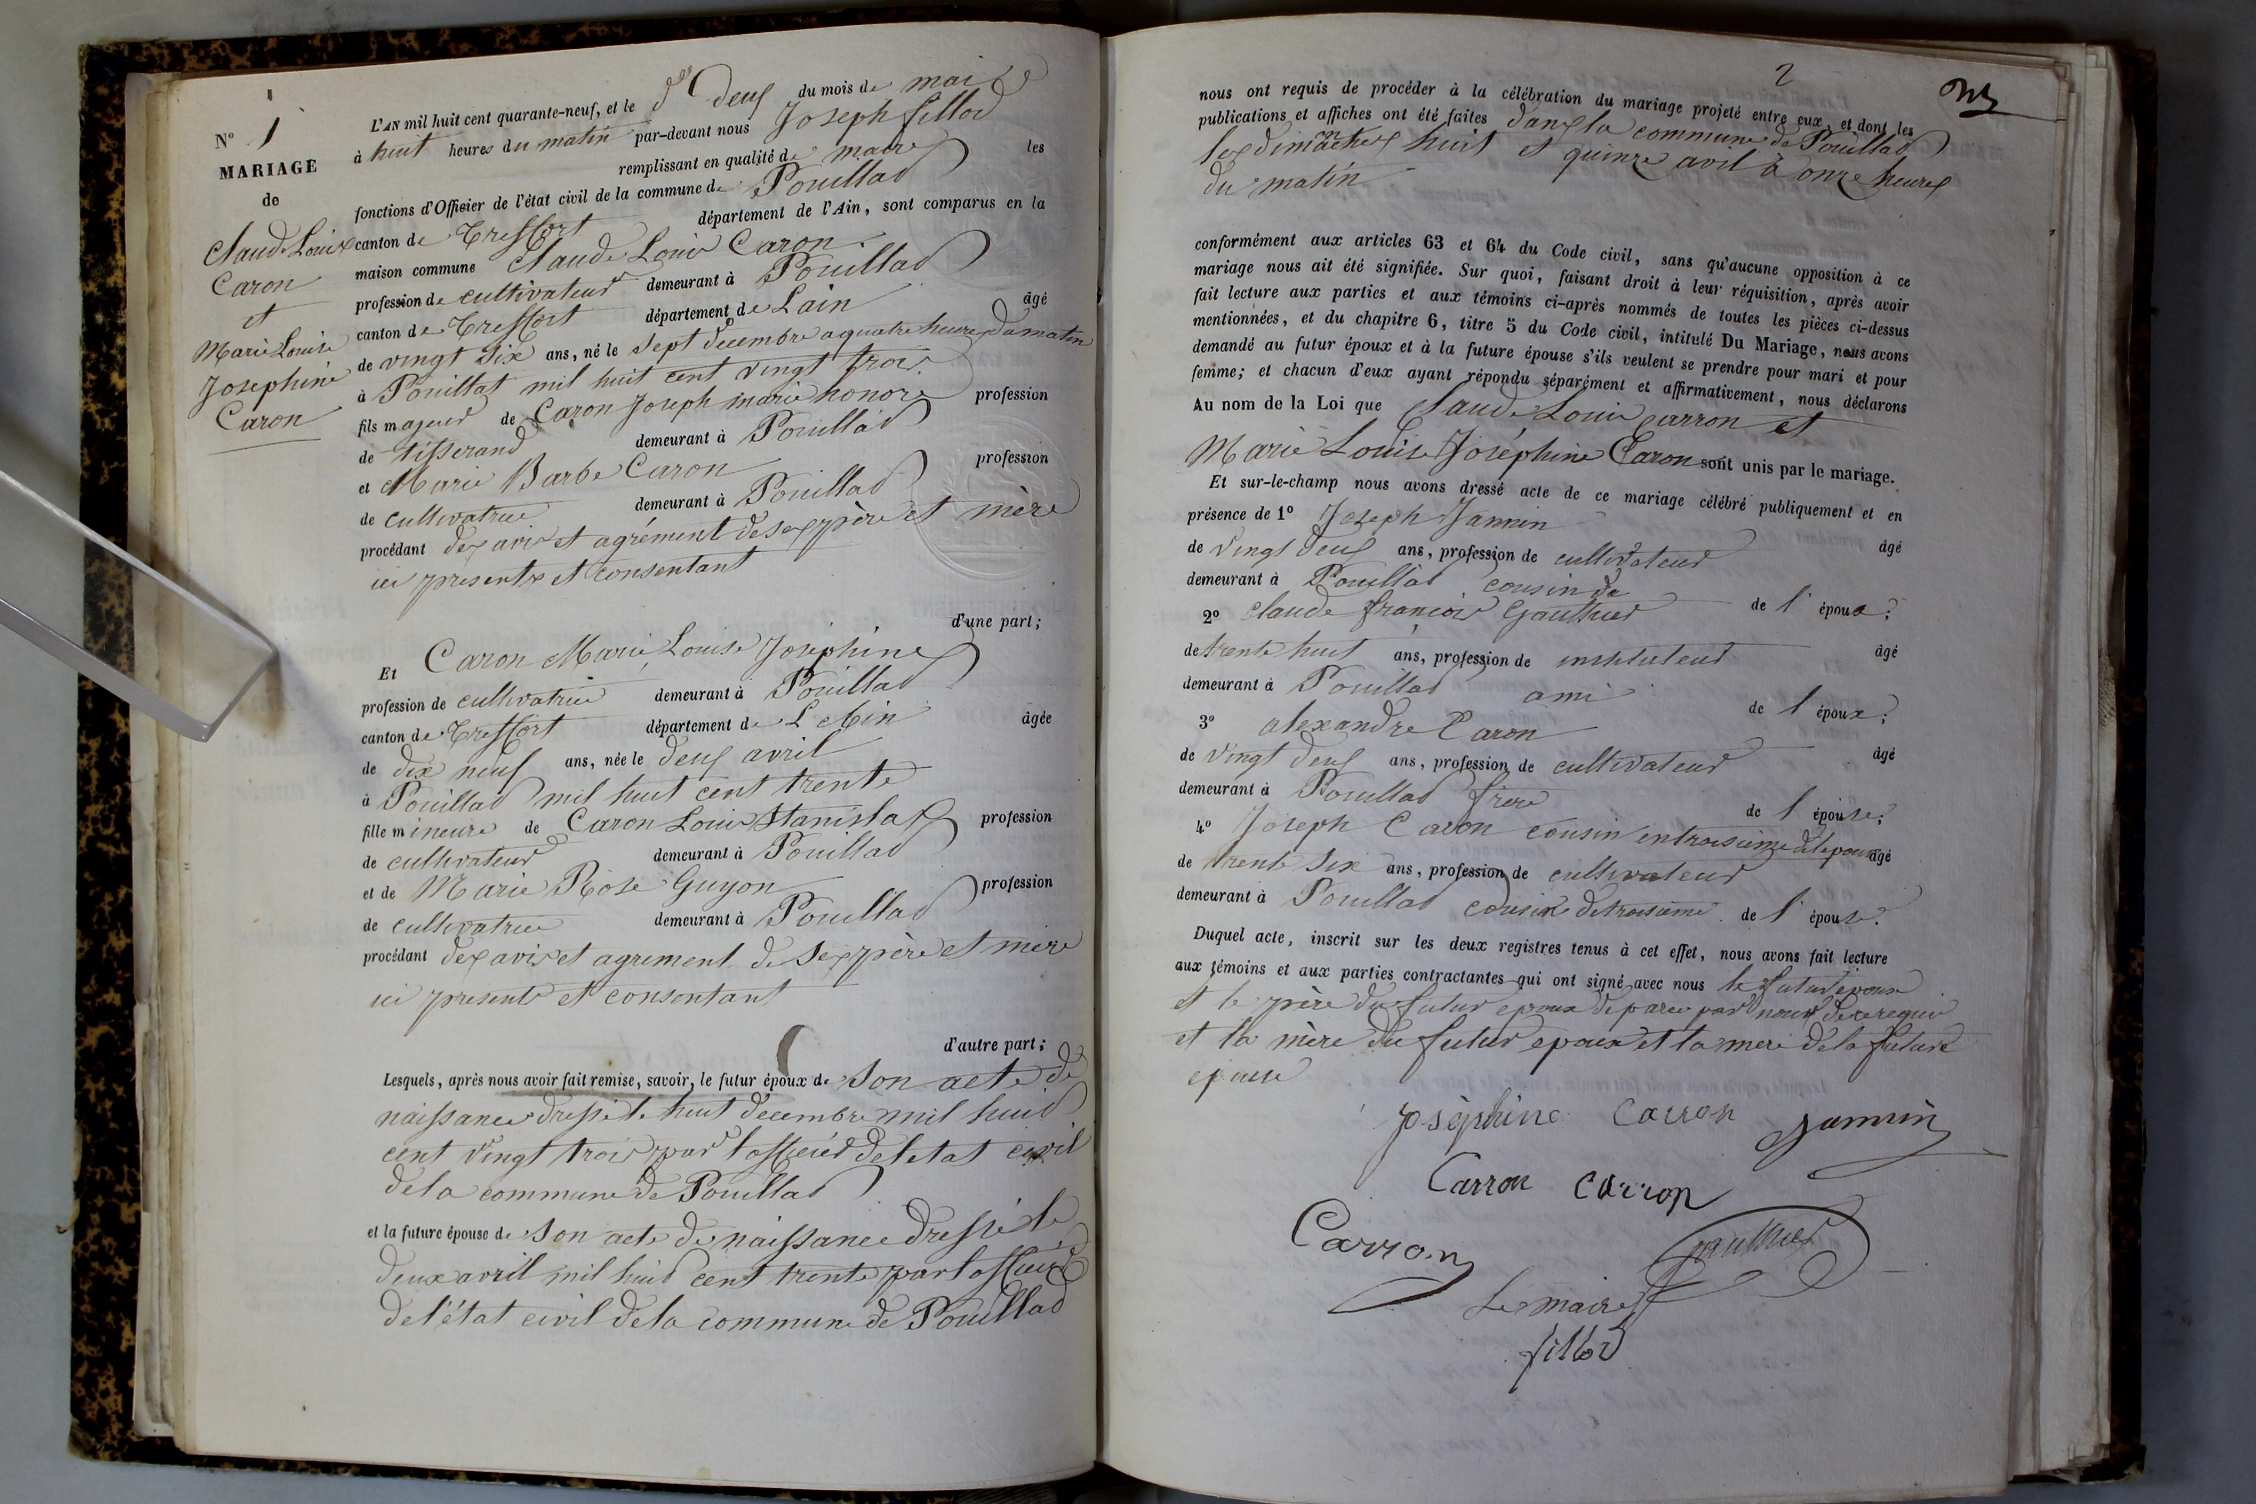 N° 1
MARIAGE
de
Claude Louis
Caron
et
Marie Louise
Josephine
Caron
L'AN mil huit cent quarante-neuf, et le deux du mois de mai
à huit heures du matin par-devant nous Joseph fillod
remplissant en qualité de maire les
fonctions d'Officier de l'état civil de la commune de Pouillad
canton de Treffort département de l'Ain, sont comparus en la
maison commune Claude Louis Caron
profession de cultivateur demeurant à Pouillad
canton de Treffort département de Lain âgé
de vingt six ans, né le sept decembre a quatre heures du matin
à Pouillat mil huit cent vingt trois
fils majeur de Caron Joseph marie honoré profession
de tisserand demeurant à Pouillad
et Marie Barbe Caron profession
de cultivatrice demeurant à Pouillad
procédant des avis et agrément de ses père et mère
ici presents et consentant
d'une part;
Et Caron Marie Louise Joséphine
profession de cultivatrice demeurant à Pouillad
canton de Treffort département de L'Ain âgée
de dix neuf ans, née le deux avril
à Pouillad mil huit cent trente
fille mineure de Caron Louis Stanislas profession
de cultivateur demeurant à Pouillad
et de Marie Rose Guyon profession
de cultivatrice demeurant à Pouillad
procédant des avis et agrement de ses père et mère
ici presents et consentant
d'autre part;
Lesquels, après nous avoir fait remise, savoir, le futur époux de son acte de
naissance dressé le huit decembre mil huid
cent vingt trois par l'officier de letat civil
de la commune de Pouillad
et la future épouse de son acte de naissance dressé le
deux avril mil huid cent trente par lofficier
de l'état civil de la commune de Pouillad
2
nous ont requis de procéder à la célébration du mariage projeté entre eux, et dont les
publications et affiches ont été faites dans la commune de Pouillad
les dimanches huit et quinze avil à onze heures
du matin
conformément aux articles 63 et 64 du Code civil, sans qu'aucune opposition à ce
mariage nous ait été signifiée. Sur quoi, faisant droit à leur réquisition, après avoir
fait lecture aux parties et aux témoins ci-après nommés de toutes les pièces ci-dessus
mentionnées, et du chapitre 6, titre 5 du Code civil, intitulé Du Mariage, nous avons
demandé au futur époux et à la future épouse s'ils veulent se prendre pour mari et pour
femme; et chacun d'eux ayant répondu séparément et affirmativement, nous déclarons
Au nom de la Loi que Claude Louis Carron et
Marie Louise Joséphine Caron sont unis par le mariage.
Et sur-le-champ nous avons dressé acte de ce mariage célébré publiquement et en
présence de 1° Joseph Jannin
de vingt deux ans, profession de cultivateur âgé
demeurant à Pouillad cousin de
2° Claude françois Gauthier de l' époux;
de trente huit ans, profession de instituteur âgé
demeurant à Pouillad ami
3° alexandre Caron de l' époux;
de vingt deux ans, profession de cultivateur âgé
demeurant à Pouillad frère
4° Joseph Caron cousin introisieme de l'époux de l' épouse;
de trente six ans, profession de cultivateur âgé
demeurant à Pouillad cousin de troisieme de l' épouse.
Duquel acte, inscrit sur les deux registres tenus à cet effet, nous avons fait lecture
aux témoins et aux parties contractantes qui ont signé avec nous le futur époux
et le père du futur epoux de parce par nous de ce requis
et la mère du futur epoux et la mere de la future
epouse
Joséphine Carron Jannin
Carron Carron
Carron Gauthier
Le maire
fillod